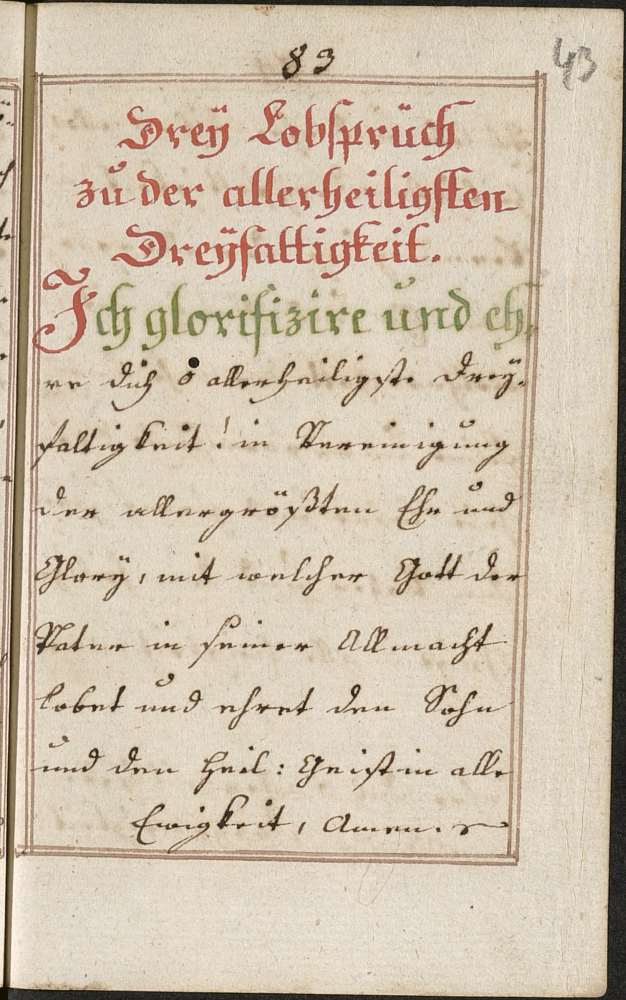 83
43
Dreÿ Lobsprüch
zu der allerheiligsten
Dreÿfaltigkeit.
Ich glorifizire und eh,
re dich ô allerheiligste Dreÿ,
faltigkeit! in Vereinigung
der allergrößten Ehr und
Glorÿ, mit welcher Gott der
Vater in seiner Allmacht
lobet und ehret den Sohn
und den Heil: Geist in alle
Ewigkeit, Amen.